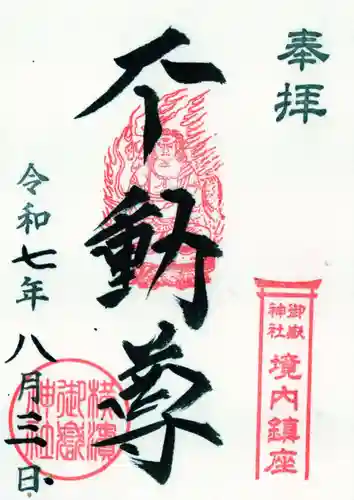 奉拝
御嶽神社
境内鎮座
不動尊
令和七年八月三日
横濱御嶽神社